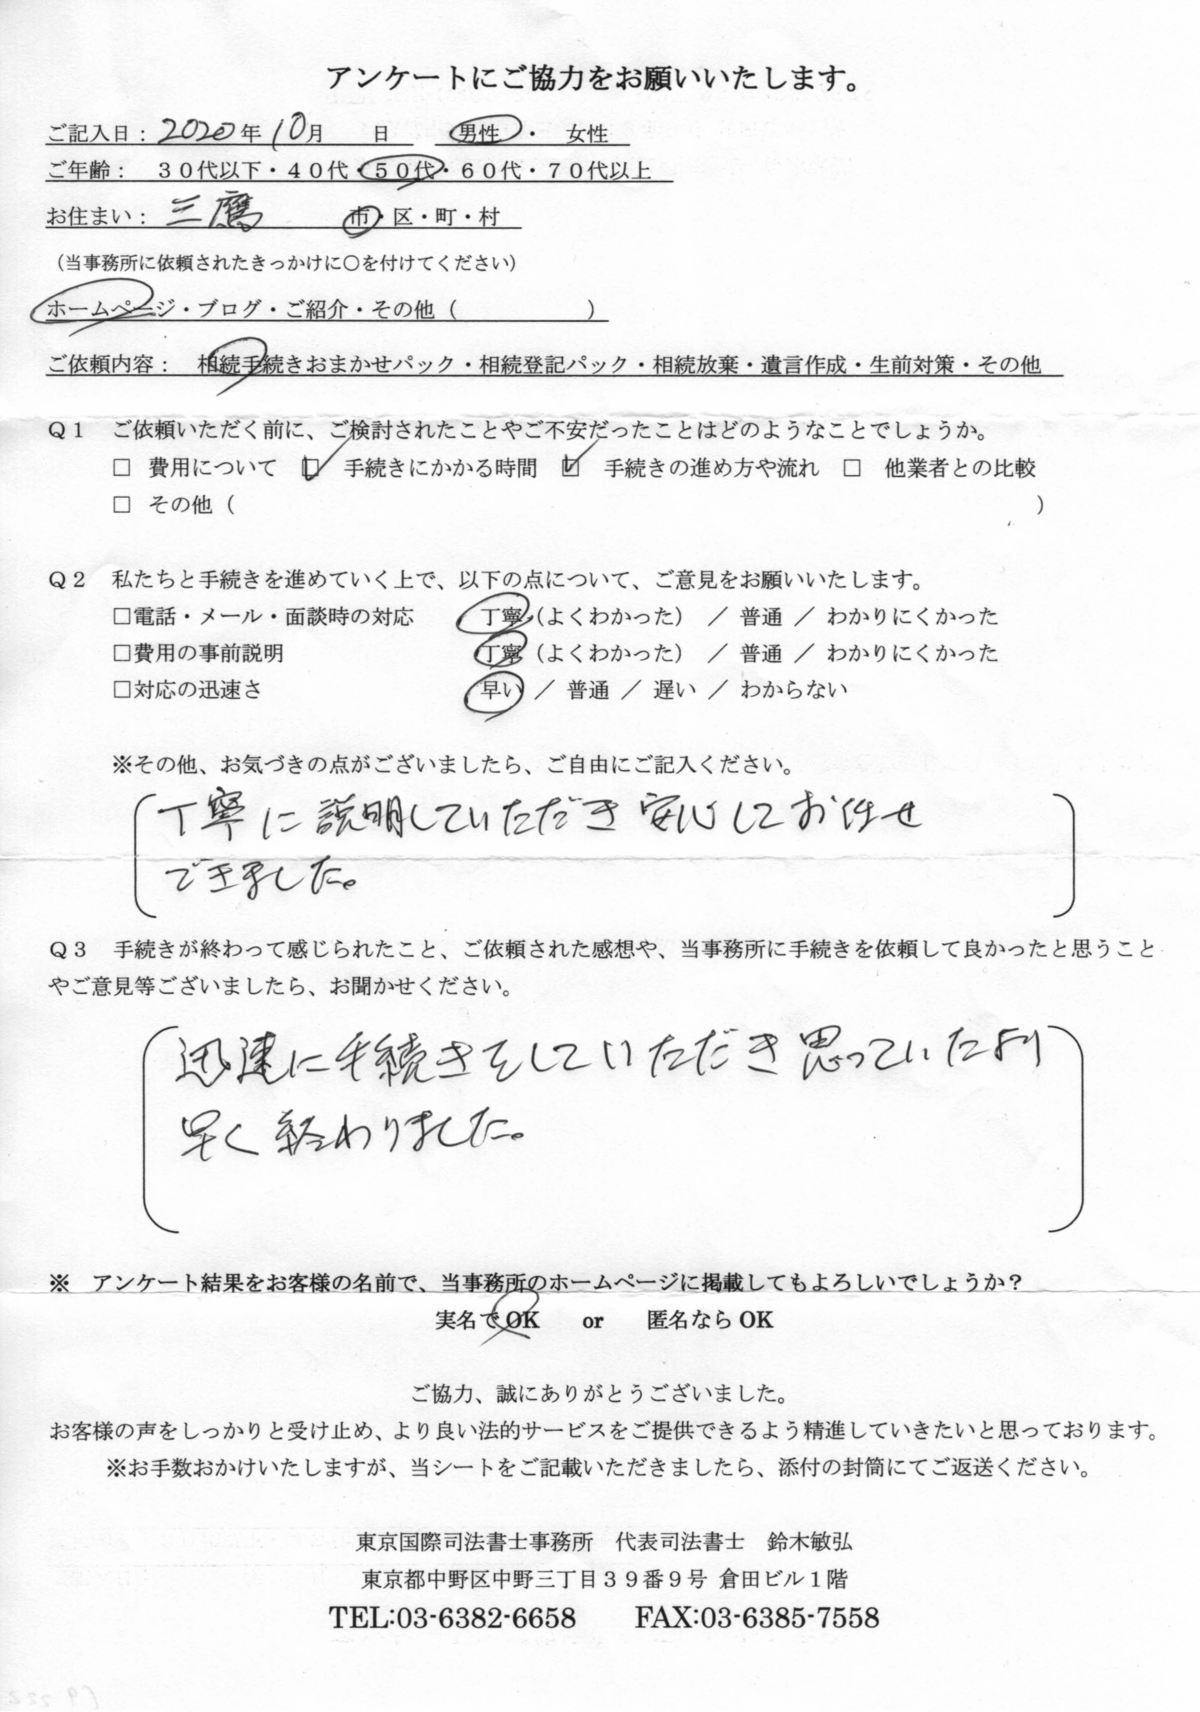 アンケートにご協力をお願いいたします。
ご記入日： 2020 年 10 月　　日　男性 ・ 女性
ご年齢：　３０代以下・４０代・５０代・６０代・７０代以上
お住まい： 三鷹　市・区・町・村
（当事務所に依頼されたきっかけに○を付けてください）
ホームページ・ブログ・ご紹介・その他（　　　　　　）
ご依頼内容：　相続手続きおまかせパック・相続登記パック・相続放棄・遺言作成・生前対策・その他
Ｑ１　ご依頼いただく前に、ご検討されたことやご不安だったことはどのようなことでしょうか。
□ 費用について　☑ 手続きにかかる時間　☑ 手続きの進め方や流れ　□ 他業者との比較
□ その他（　　　　　　　　　　）
Ｑ２　私たちと手続きを進めていく上で、以下の点について、ご意見をお願いいたします。
□電話・メール・面談時の対応　丁寧（よくわかった） ／ 普通 ／ わかりにくかった
□費用の事前説明　丁寧（よくわかった） ／ 普通 ／ わかりにくかった
□対応の迅速さ　早い ／ 普通 ／ 遅い ／ わからない
※その他、お気づきの点がございましたら、ご自由にご記入ください。
丁寧に説明していただき安心してお任せ
できました。
Ｑ３　手続きが終わって感じられたこと、ご依頼された感想や、当事務所に手続きを依頼して良かったと思うこと
やご意見等ございましたら、お聞かせください。
迅速に手続きをしていただき思っていたより
早く終わりました。
※　アンケート結果をお客様の名前で、当事務所のホームページに掲載してもよろしいでしょうか？
実名で OK　　or　　匿名なら OK
ご協力、誠にありがとうございました。
お客様の声をしっかりと受け止め、より良い法的サービスをご提供できるよう精進していきたいと思っております。
※お手数おかけいたしますが、当シートをご記載いただきましたら、添付の封筒にてご返送ください。
東京国際司法書士事務所　代表司法書士　鈴木敏弘
東京都中野区中野三丁目３９番９号 倉田ビル１階
TEL:03-6382-6658　　FAX:03-6385-7558